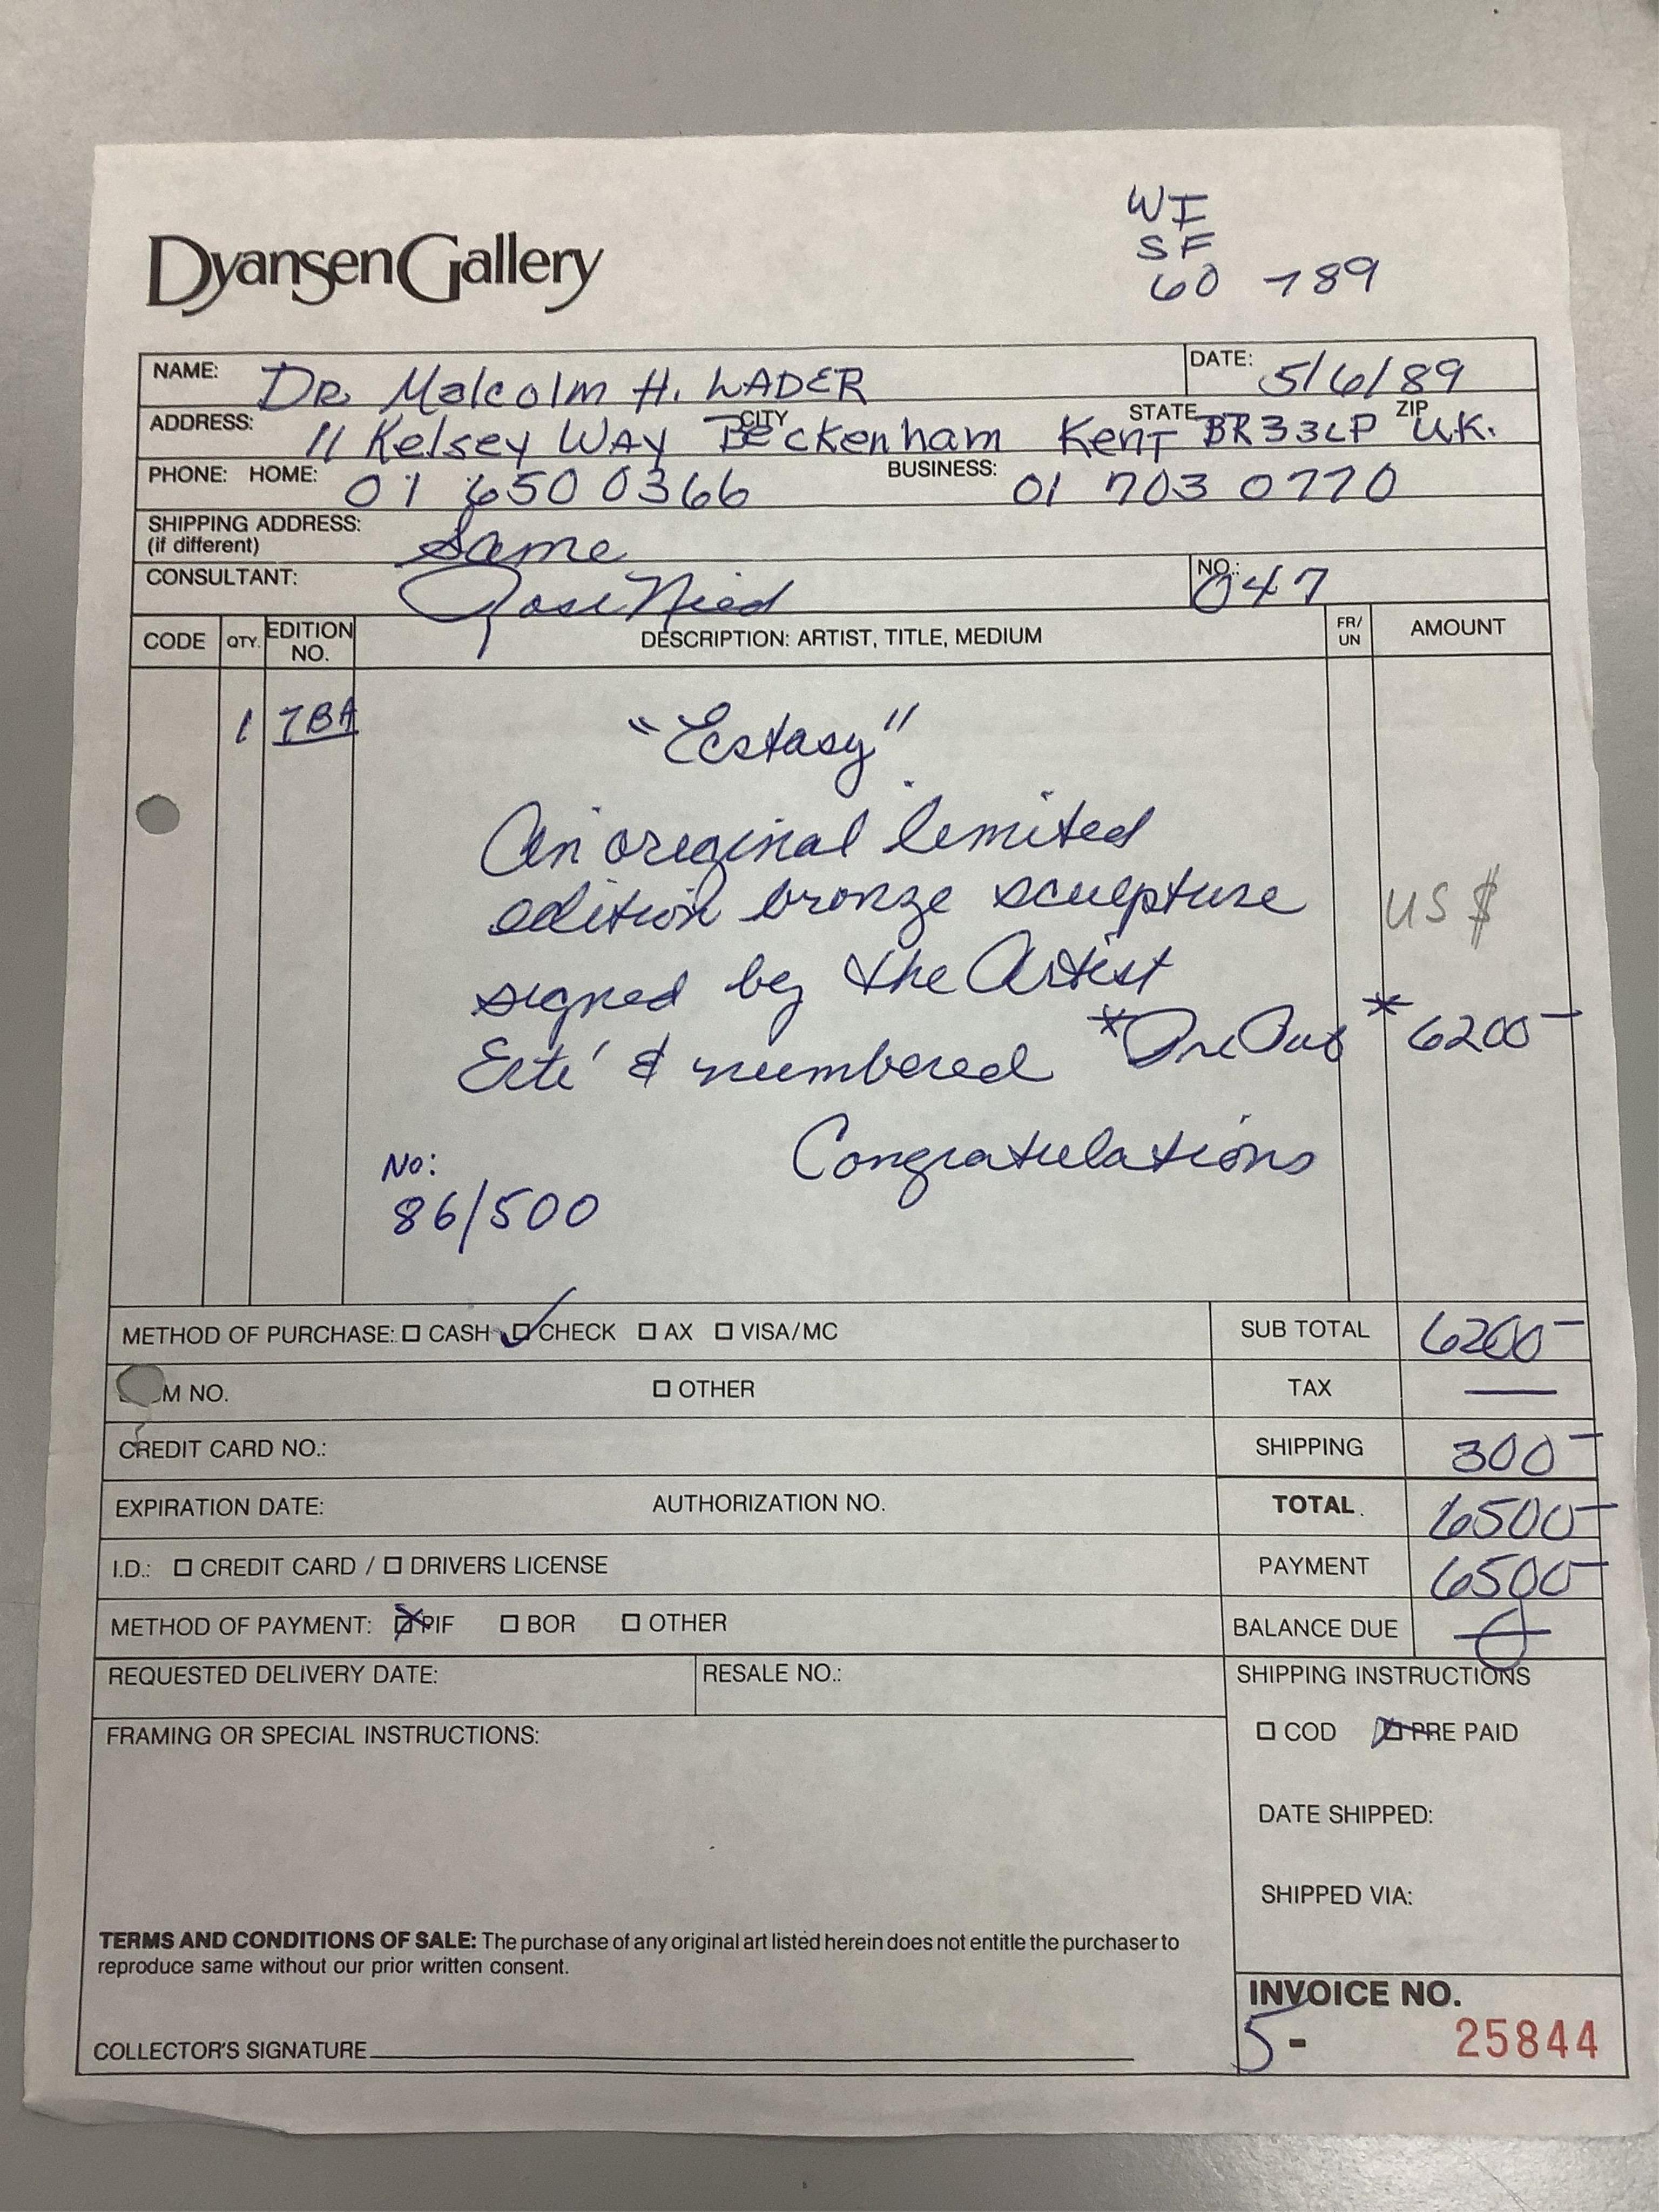 WI
SF
60 789
Dyansen Gallery
NAME: DR. Malcolm H. WADER DATE: 5/6/89
ADDRESS: 11 Kelsey WAY CITY Beckenham STATE Kent BR33LP ZIP U.K.
PHONE: HOME: 01 650 0366 BUSINESS: 01 703 0770
SHIPPING ADDRESS: (if different) Same
CONSULTANT: NO.: 047
CODE QTY. EDITION NO. DESCRIPTION: ARTIST, TITLE, MEDIUM FR/UN AMOUNT
1 TBA "Ecstasy"
An original limited
edition bronze sculpture US $
signed by the Artist
Erté & numbered * * 6200-
Congratulations
No:
86/500
METHOD OF PURCHASE: CASH CHECK AX VISA/MC SUB TOTAL 6200-
M NO. OTHER TAX —
CREDIT CARD NO.: SHIPPING 300-
EXPIRATION DATE: AUTHORIZATION NO. TOTAL 6500-
I.D.: CREDIT CARD / DRIVERS LICENSE PAYMENT 6500-
METHOD OF PAYMENT: PIF BOR OTHER BALANCE DUE
REQUESTED DELIVERY DATE: RESALE NO.: SHIPPING INSTRUCTIONS
FRAMING OR SPECIAL INSTRUCTIONS: COD PRE PAID
DATE SHIPPED:
SHIPPED VIA:
TERMS AND CONDITIONS OF SALE: The purchase of any original art listed herein does not entitle the purchaser to
reproduce same without our prior written consent.
INVOICE NO.
COLLECTOR'S SIGNATURE 5- 25844